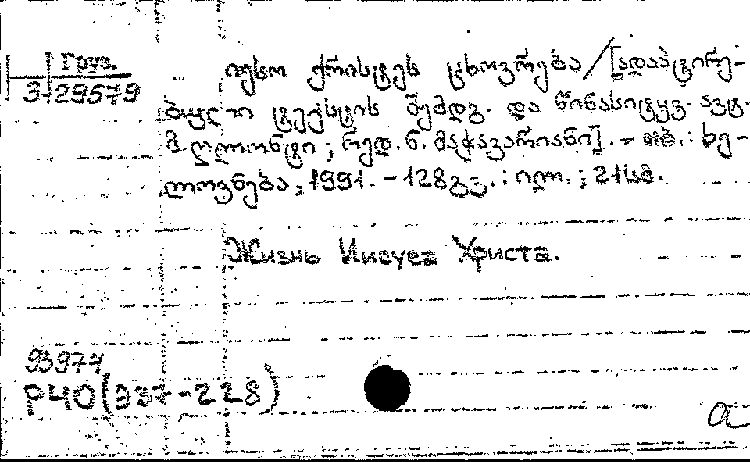 Груз.
3-29579
იესო ქრისტეს ცხოვრება / [ადაპტირე-
ბული ტექსტის შემდგ. და წინასიტყვ. ავტ.
მ. ღლონტი ; რედ. ნ. მაჭავარიანი]. - თბ. : ხე-
ლოვნება, 1991. - 128 გვ. : ილ. ; 21 სმ.
Жизнь Иисуса Христа.
93974
Р40(337-228)
а